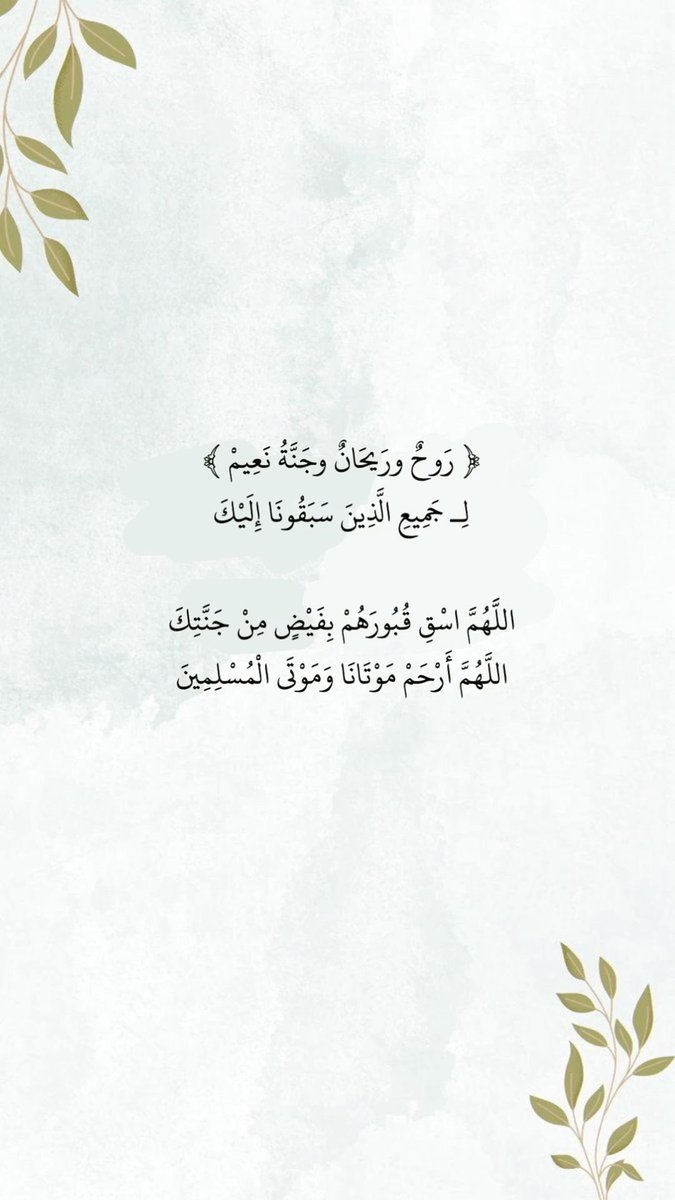 ﴿ رَوحٌ ورَيحَانٌ وجَنَّةُ نَعِيمْ ﴾
لِـ جَمِيعِ الَّذِينَ سَبَقُونَا إِلَيْكَ
اللَّهُمَّ اسْقِ قُبُورَهُمْ بِفَيْضٍ مِنْ جَنَّتِكَ
اللَّهُمَّ أَرْحَمْ مَوْتَانَا وَمَوْتَى الْمُسْلِمِينَ